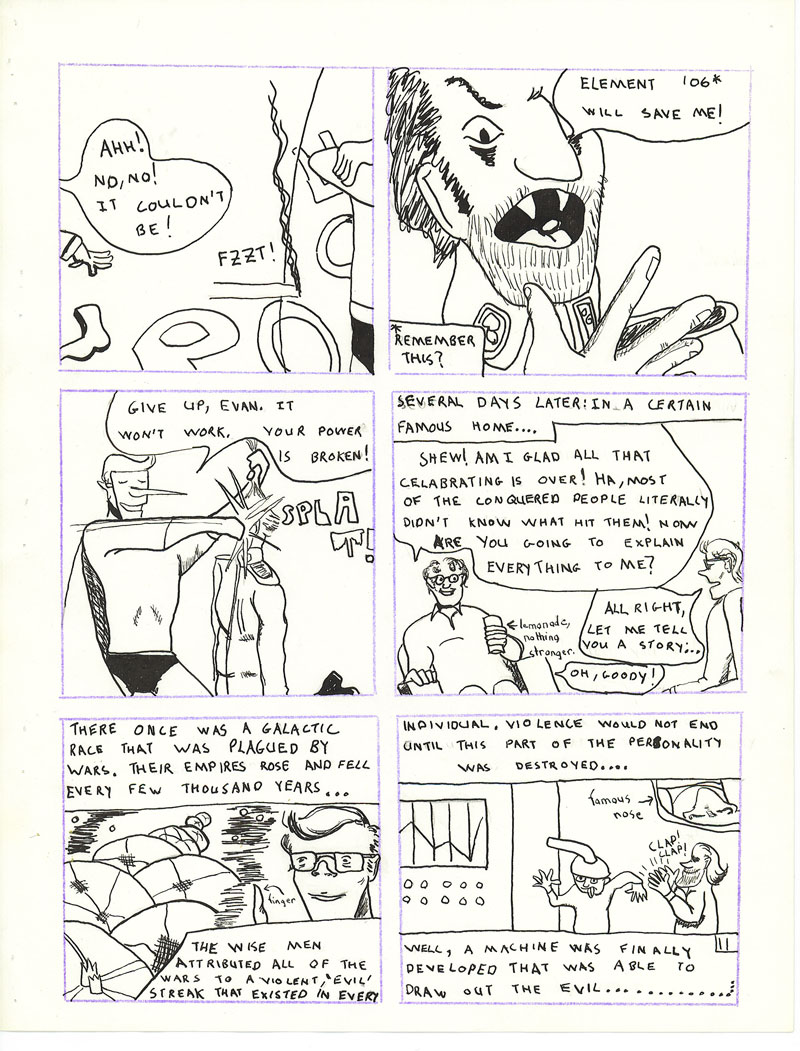 AHH!
NO, NO!
IT COULDN'T
BE!
FZZT!
ELEMENT '06*
WILL SAVE ME!
*REMEMBER
THIS?
GIVE UP, EVAN. IT
WON'T WORK. YOUR POWER
IS BROKEN!
SPLA
T!
SEVERAL DAYS LATER: IN A CERTAIN
FAMOUS HOME....
SHEW! AM I GLAD ALL THAT
CELABRATING IS OVER! HA, MOST
OF THE CONQUERED PEOPLE LITERALLY
DIDN'T KNOW WHAT HIT THEM! NOW
ARE YOU GOING TO EXPLAIN
EVERYTHING TO ME?
ALL RIGHT,
LET ME TELL
YOU A STORY...
lemonade,
nothing
stronger.
OH, GOODY!
THERE ONCE WAS A GALACTIC
RACE THAT WAS PLAGUED BY
WARS. THEIR EMPIRES ROSE AND FELL
EVERY FEW THOUSAND YEARS...
finger
THE WISE MEN
ATTRIBUTED ALL OF THE
WARS TO A VIOLENT, 'EVIL'
STREAK THAT EXISTED IN EVERY
INDIVIDUAL. VIOLENCE WOULD NOT END
UNTIL THIS PART OF THE PERSONALITY
WAS DESTROYED....
famous
nose
CLAP!
CLAP!
11
WELL, A MACHINE WAS FINALLY
DEVELOPED THAT WAS ABLE TO
DRAW OUT THE EVIL..............